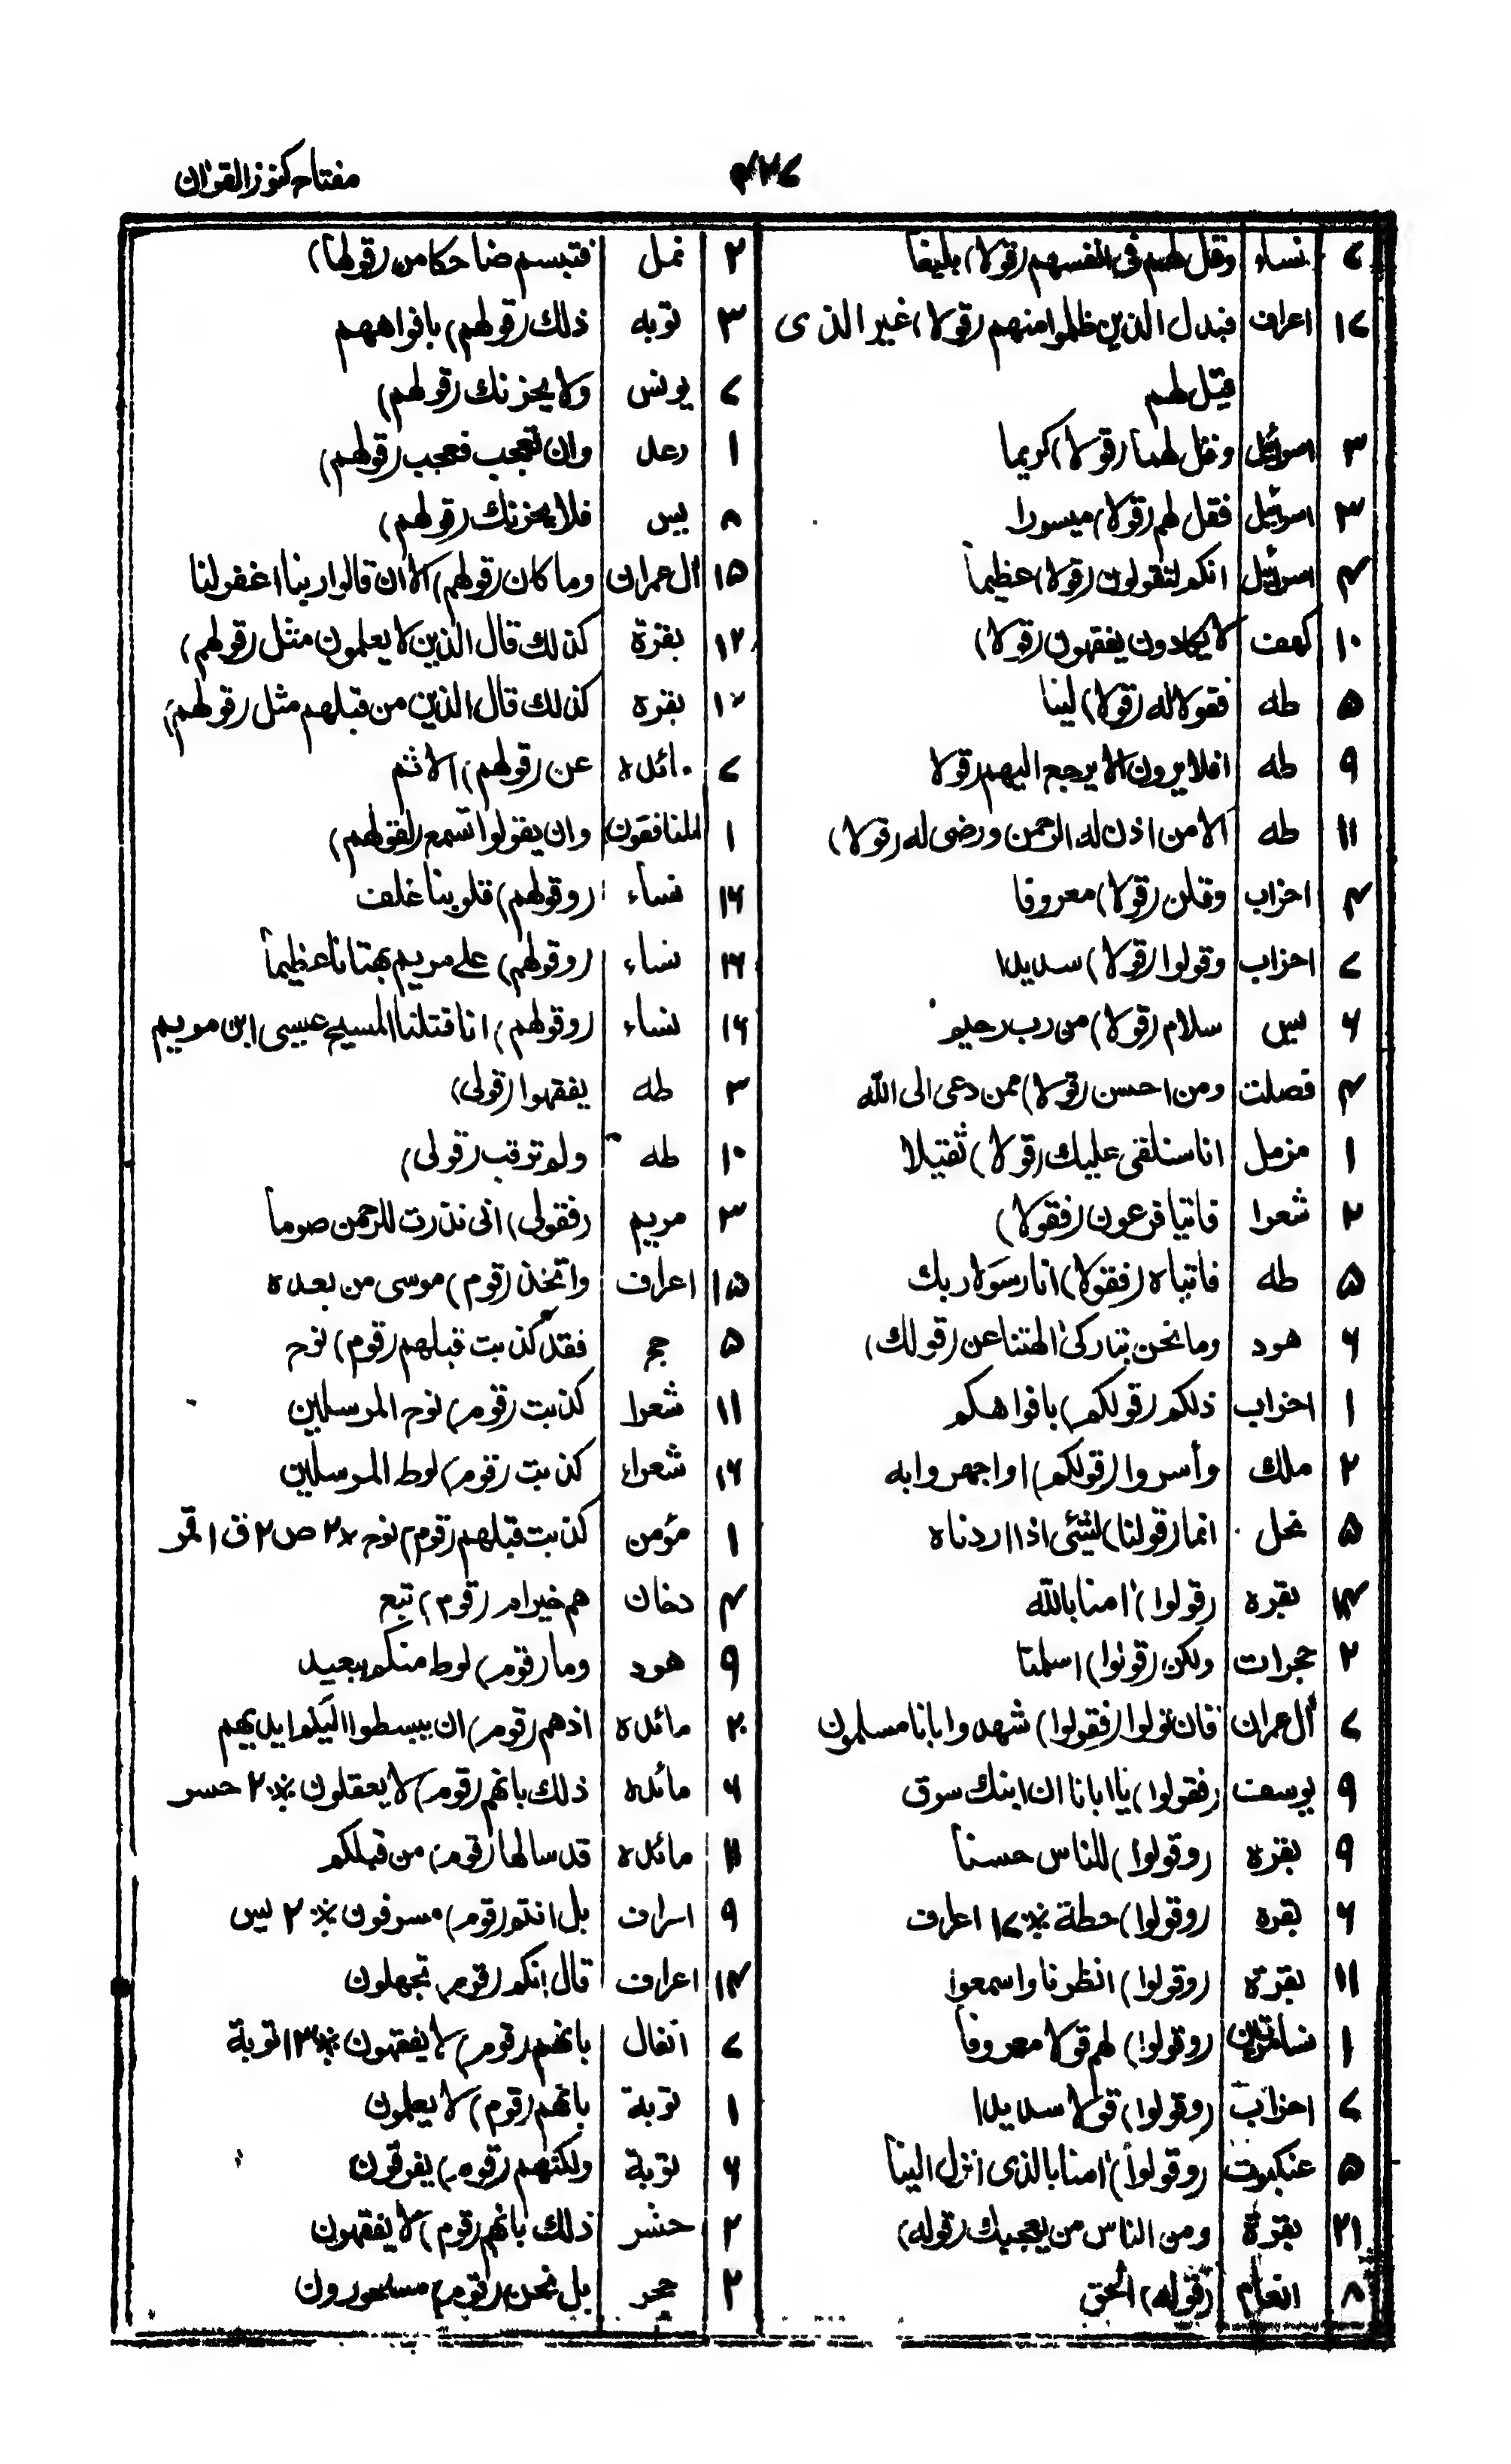 مفتاح کنوز القرآن
۴۳۷
۷ نساء وقل لهم فی انفسهم (قولا) بلیغا
۱۷ اعراف فبدل الذین ظلموا منهم (قولا) غیر الذی
قیل لهم
۳ اسرائیل وقل لهما (قولا) کریما
۳ اسرائیل فقل لهم (قولا) میسورا
۴ اسرائیل انکم لتقولون (قولا) عظیما
۱۰ کهف لا یکادون یفقهون (قولا)
۵ طه فقولا له (قولا) لینا
۹ طه افلا یرون الا یرجع الیهم (قولا
۱۱ طه الا من اذن له الرحمن ورضی له (قولا)
۴ احزاب وقلن (قولا) معروفا
۷ احزاب وقولوا (قولا) سدیدا
۶ یس سلام (قولا) من رب رحیم
۴ فصلت ومن احسن (قولا) ممن دعی الی الله
۱ مزمل انا سنلقی علیک (قولا) ثقیلا
۲ شعرا فاتیا فرعون (فقولا)
۵ طه فاتیاه (فقولا) انا رسولا ربک
۶ هود وما نحن بتارکی الهتنا عن (قولک)
۱ احزاب ذلکم (قولکم) بافواهکم
۲ ملک وأسروا (قولکم) او اجهروا به
۵ نحل انما (قولنا) لشئی اذا اردناه
۱۴ بقره (قولوا) امنا بالله
۲ حجرات ولکن (قولوا) اسلمنا
۷ آل عمران فان تولوا (فقولوا) شهدوا بانا مسلمون
۹ یوسف (فقولوا) یا ابانا ان ابنک سرق
۹ بقره (وقولوا) للناس حسنا
۶ بقره (وقولوا) حطة ※ ۱۷ اعراف
۱۱ بقرة (وقولوا) انظرنا واسمعوا
۱ نسا (وقولوا) لهم قولا معروفا
۷ احزاب (وقولوا) قولا سدیدا
۵ عنکبوت (وقولوا) امنا بالذی انزل الینا
۲۱ بقرة ومن الناس من یعجبک (قوله)
۸ انعام (قوله) الحق
۲ نمل فتبسم ضاحکا من (قولها)
۳ توبه ذلک (قولهم) بافواههم
۷ یونس ولا یحزنک (قولهم)
۱ رعد وان تعجب فعجب (قولهم)
۸ یس فلا یحزنک (قولهم)
۱۵ آل عمران وما کان (قولهم) الا ان قالوا ربنا اغفر لنا
۱۲ بقرة کذلک قال الذین لا یعلمون مثل (قولهم)
۱۲ بقره کذلک قال الذین من قبلهم مثل (قولهم)
۷ مائده عن (قولهم) الاثم
۱ المنافقون وان یقولوا تسمع (لقولهم)
۱۶ نساء (وقولهم) قلوبنا غلف
۱۶ نساء (وقولهم) علے مریم بهتانا عظیما
۱۶ نساء (وقولهم) انا قتلنا المسیح عیسی ابن مریم
۳ طه یفقهوا (قولی)
۱۰ طه ولم ترقب (قولی)
۳ مریم (فقولی) انی نذرت للرحمن صوما
۱۵ اعراف واتخذ (قوم) موسی من بعده
۵ حج فقد کذبت قبلهم (قوم) نوح
۱۱ شعرا کذبت (قوم) نوح المرسلین
۱۶ شعراء کذبت (قوم) لوط المرسلین
۱ مؤمن کذبت قبلهم (قوم) نوح ※ ۲ ص ۲ ق ۱ قمر
۴ دخان هم خیر ام (قوم) تبع
۹ هود وما (قوم) لوط منکم ببعید
۲ مائده اذهم (قوم) ان یبسطوا الیکم ایدیهم
۶ مائده ذلک بانهم (قوم) لا یعقلون ※ ۲ حسر
۱۱ مائده قد سالها (قوم) من قبلکم
۹ اسراف بل انتم (قوم) مسرفون ※ ۲ یس
۱۴ اعراف قال انکم (قوم) تجهلون
۷ انفال بانهم (قوم) لا یفقهون ※ ۱۳ توبة
۱ توبة بانهم (قوم) لا یعلمون
۶ توبة ولکنهم (قوم) یفرقون
۲ حشر ذلک بانهم (قوم) لا یفقهون
۲ حجر بل نحن (قوم) مسحورون